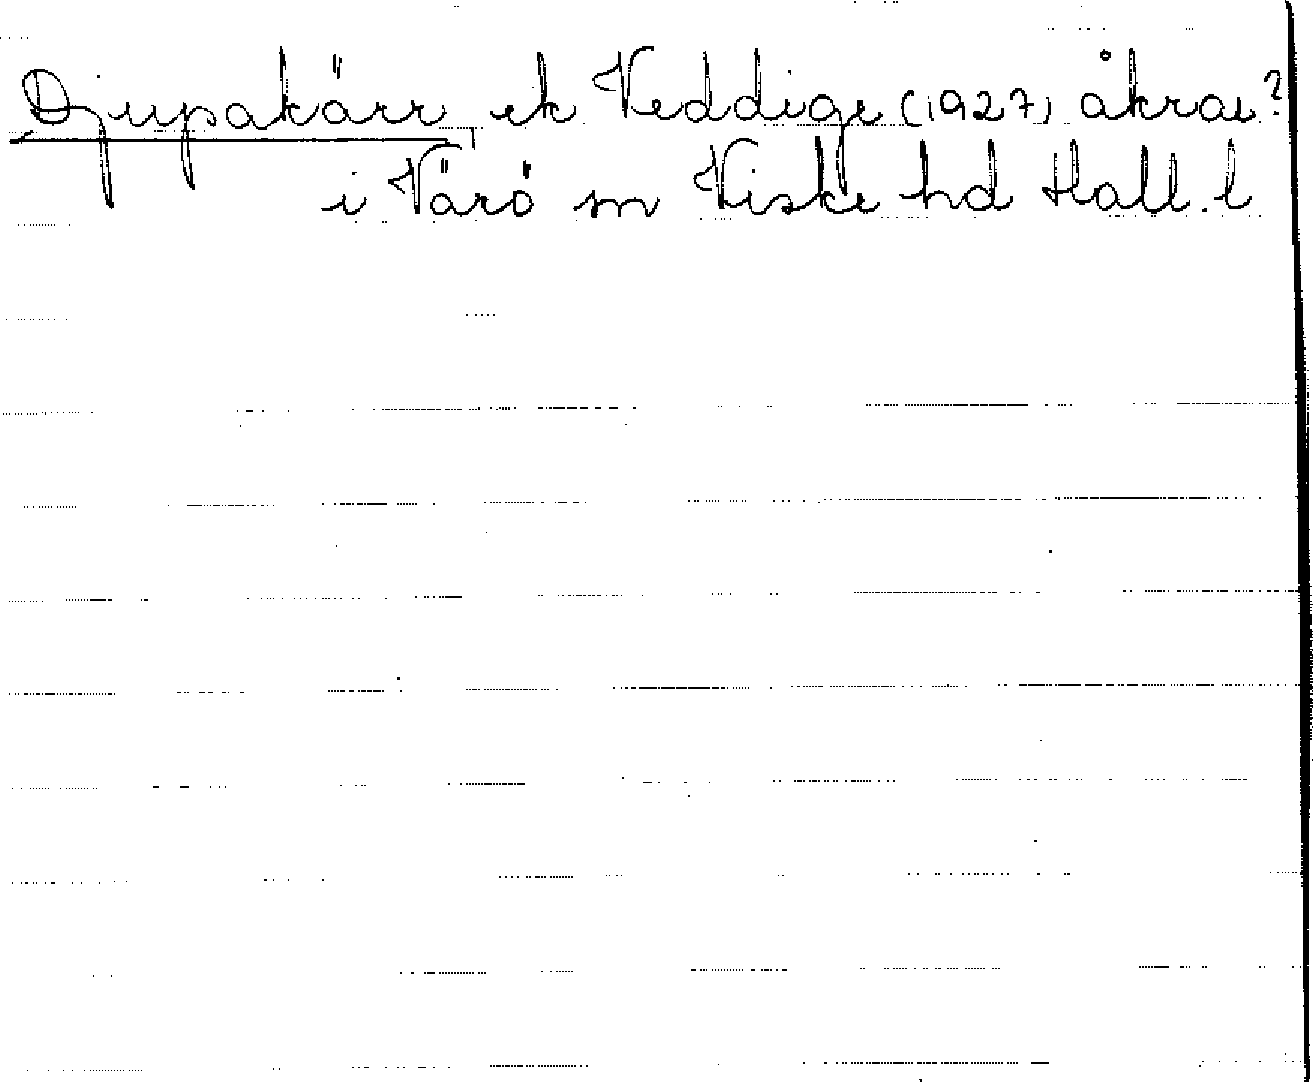 Djupakärr ek Veddige (1927) åkrar?
i Värö sn Viske hd Hall. l